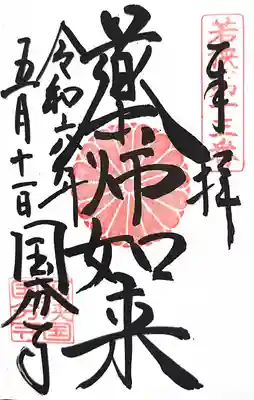 奉拝
薬師如来
令和六年
五月十一日
国分寺